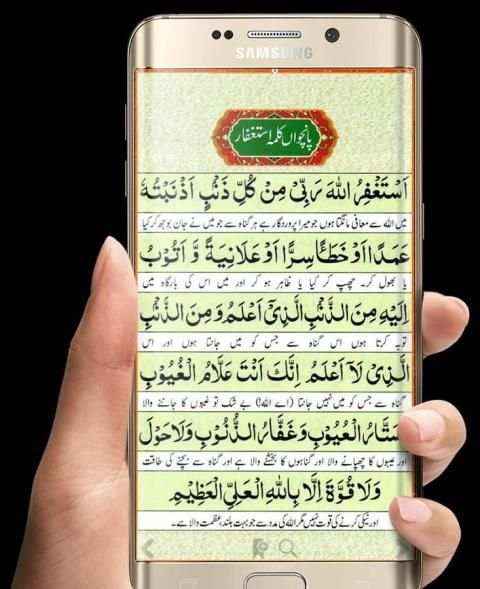 SAMSUNG
پانچواں کلمہ استغفار
اَسْتَغْفِرُ اللّٰهَ رَبِّیْ مِنْ كُلِّ ذَنْۢبٍ اَذْنَبْتُهٗ
میں اللہ سے معافی مانگتا ہوں جو میرا پروردگار ہے ہر گناہ سے جو میں نے جان بوجھ کر کیا
عَمَدًا اَوْ خَطَأً سِرًّا اَوْ عَلَانِیَةً وَّ اَتُوْبُ
یا بھول کر۔ چھپ کر کیا یا ظاہر ہو کر اور میں اس کی بارگاہ میں
اِلَیْهِ مِنَ الذَّنْۢبِ الَّذِیْٓ اَعْلَمُ وَمِنَ الذَّنْۢبِ
توبہ کرتا ہوں اس گناہ سے جس کو میں جانتا ہوں اور اس
الَّذِیْ لَآ اَعْلَمُ اِنَّكَ اَنْتَ عَلَّامُ الْغُیُوْبِ
گناہ سے جس کو میں نہیں جانتا (اے اللہ!) بے شک تو غیبوں کا جاننے والا
سَتَّارُ الْعُیُوْبِ وَغَفَّارُ الذُّنُوْبِ وَلَاحَوْلَ
اور عیبوں کا چھپانے والا اور گناہوں کا بخشنے والا ہے اور گناہ سے بچنے کی طاقت
وَلَا قُوَّةَ اِلَّا بِاللّٰهِ الْعَلِیِّ الْعَظِیْمِ
اور نیکی کرنے کی قوت نہیں مگر اللہ کی مدد سے جو بہت بلند، عظمت والا ہے۔